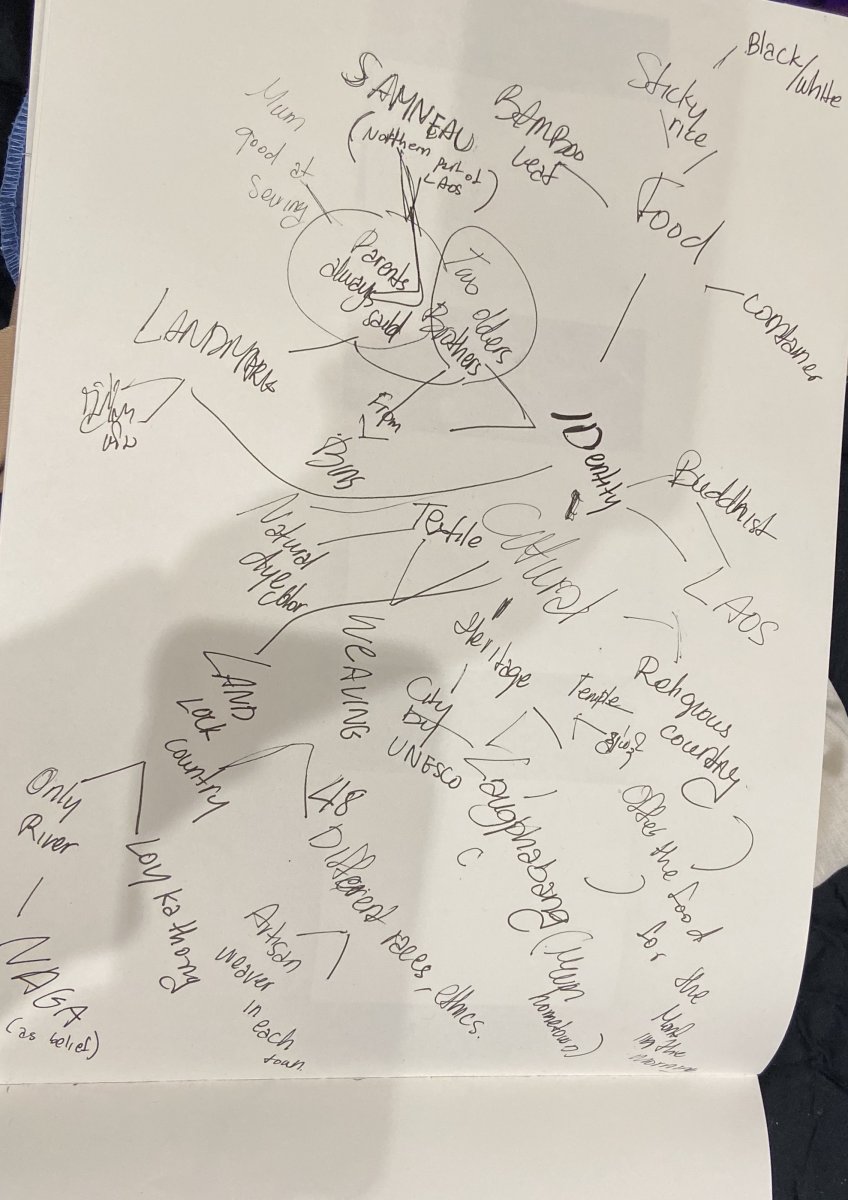 Black/
white
Sticky
rice
Food
container
BAMBOO
leaf
SAMNEAU
(Northern part of
LAOS)
Mum
good at
sewing
Parents
always
said
Two olders
Brothers
LANDMARK
From
IDentity
Buddhist
LAOS
Textile
Natural
dye
color
Cultural
WEAVING
Heritage
City
by
UNESCO
Religious
country
Temple
Offer the food
for the
Monk
in the
morning
LAND
lock
country
Only
River
NAGA
(as belief)
Loy kathong
48
Different races, ethics.
Artisan
weaver
in
each
town
Laugphabang
(Mum
hometown)